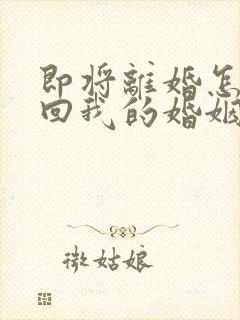 即将離婚怎
回我的婚姻
微姑娘